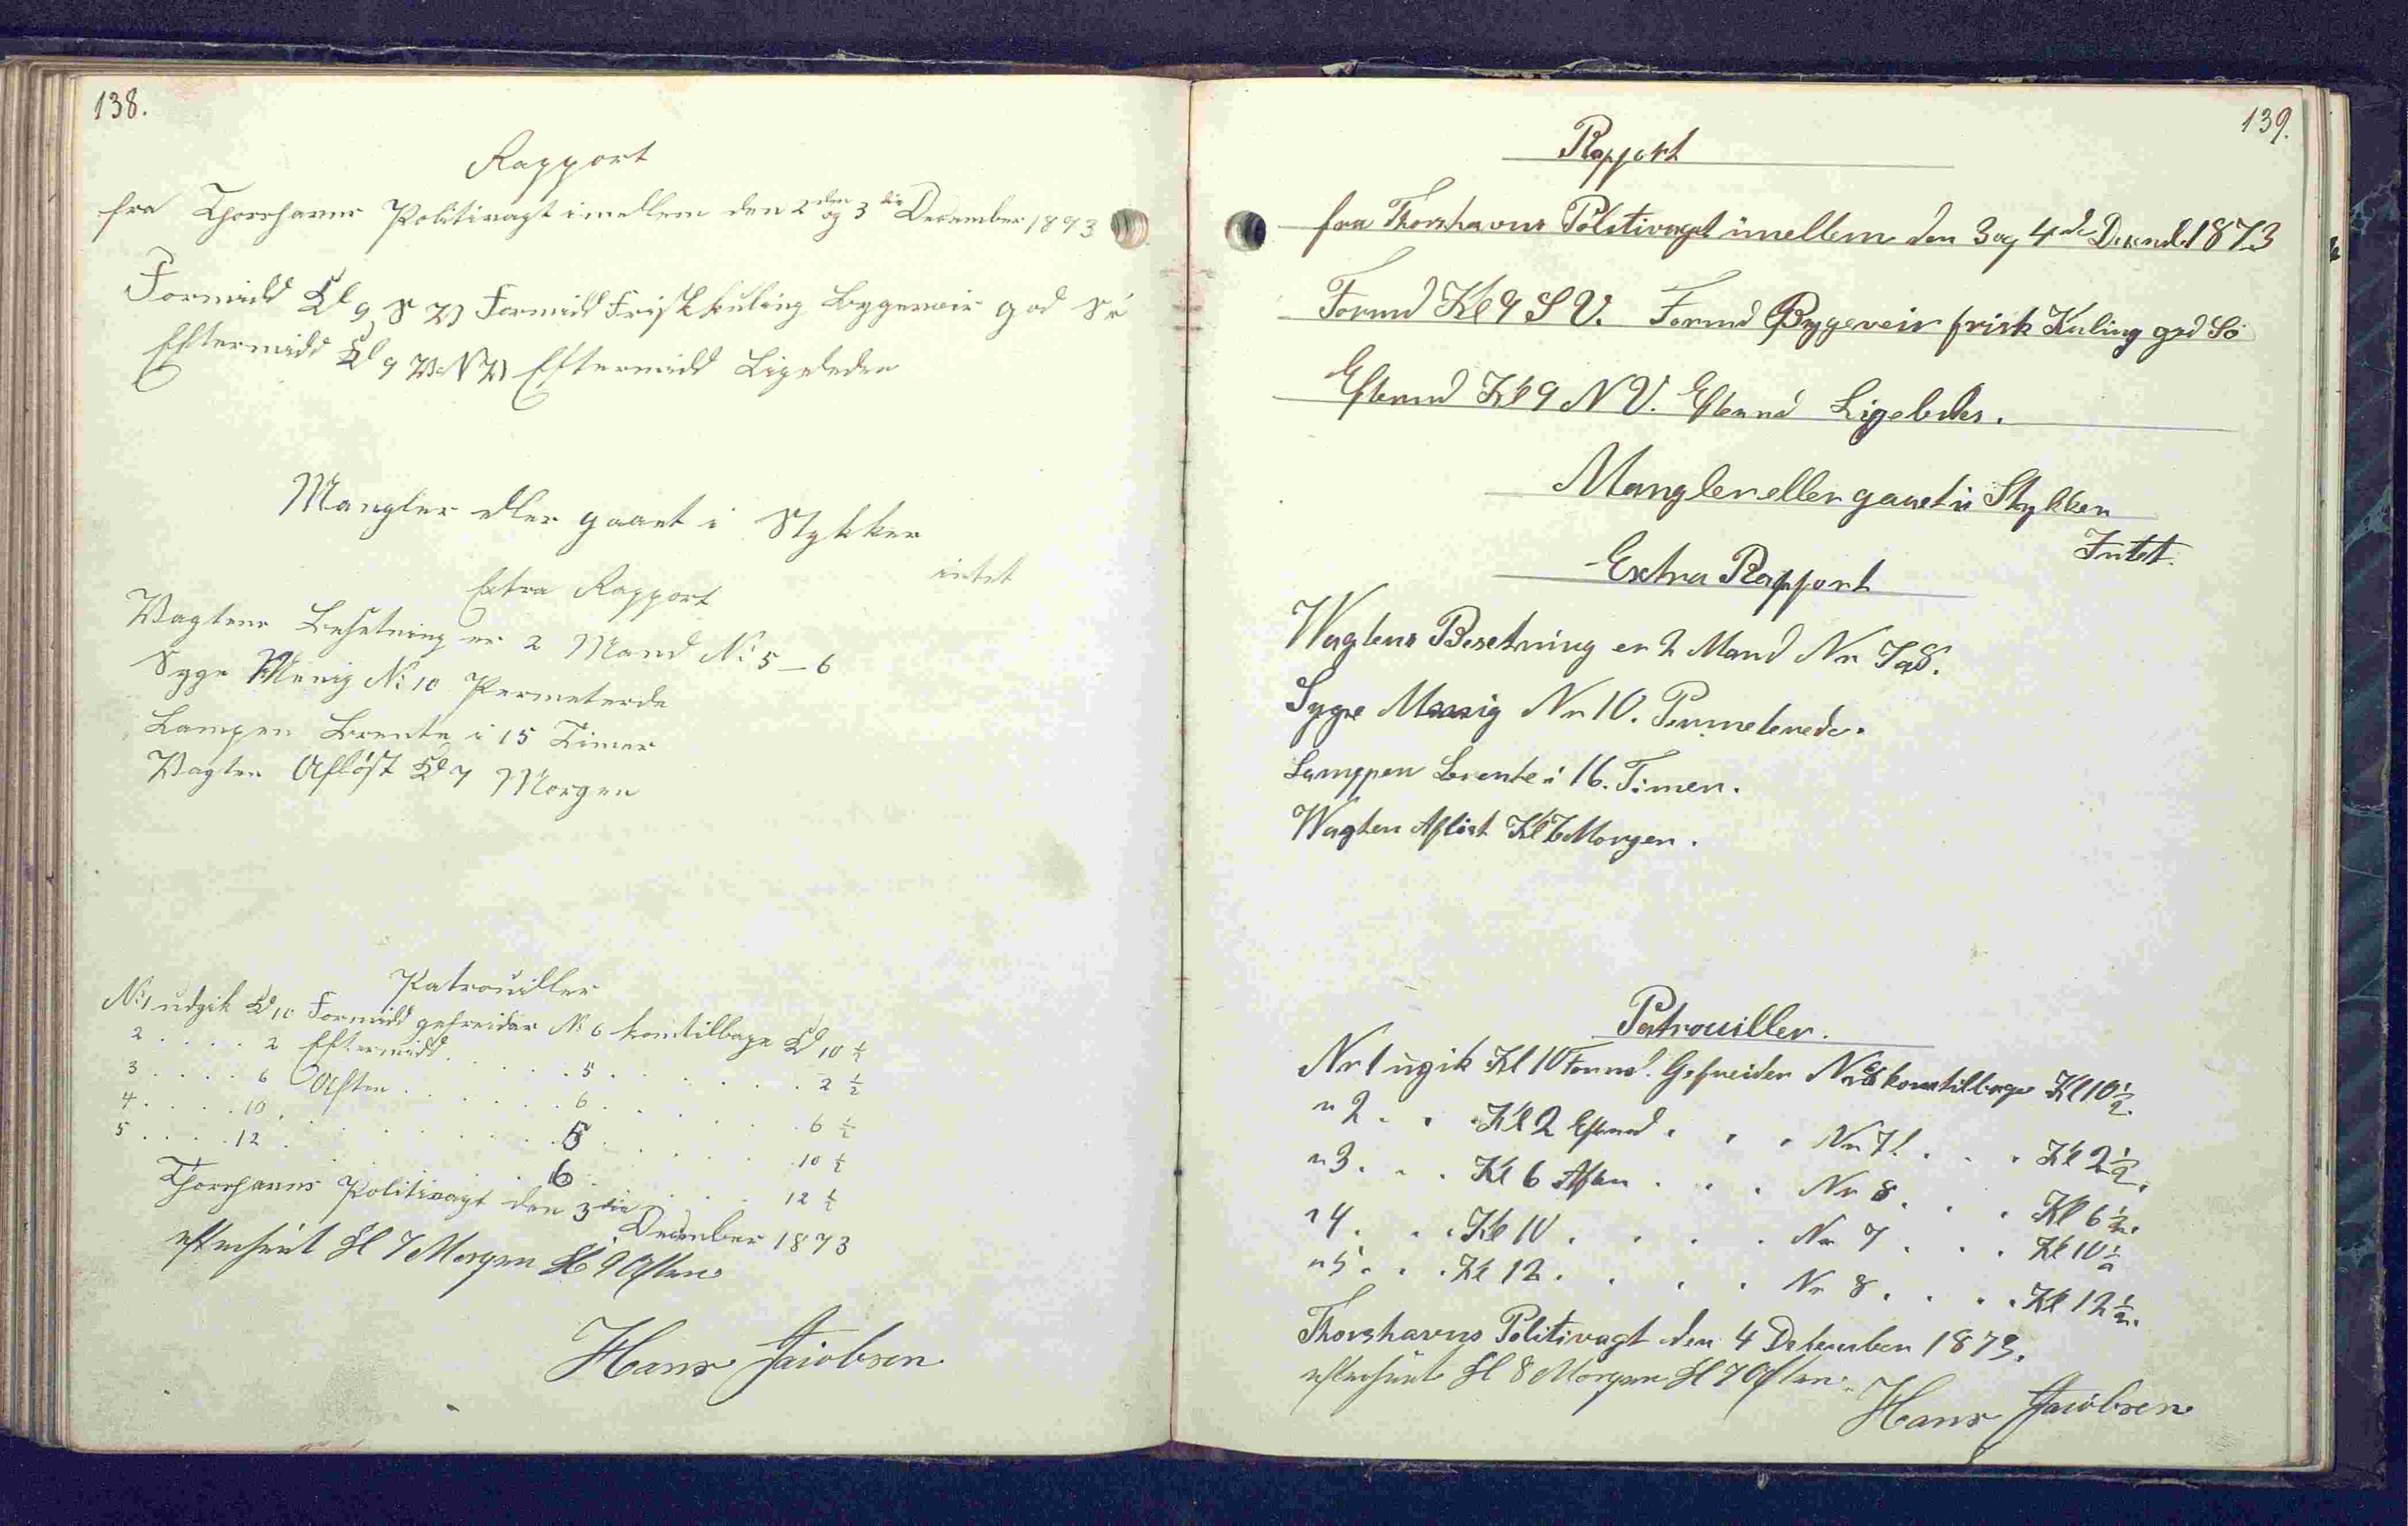 138.
Rapport
fra Thorshavns Politivagt imellem den 2den og 3die December 1873
Formidd Kl 9 S V Formidd Frisk kuling Bygeveir god Sö
Eftermidd Kl 9 V N V Eftermidd Ligeledes
Mangler eller gaaet i Stykker
intet
Extra Rapport
Vagtens Besetning er 2 Mand No 5 - 6
Syge Menig No 10 Permeterede
Lampen Brente i 15 Timer
Vagten Aflöst Kl 7 Morgen
Patrouiller
No 1 udgik Kl 10 Formidd gefreider No 6 kom tilbage Kl 10 ½
2 . . . . 2 Eftermidd . . . . . 5 . . . . . . 2 ½
3 . . . . 6 Aften . . . . . 6 . . . . . . 6 ½
4 . . . . 10 . . . . . . . 5 . . . . . . 10 ½
5 . . . . 12 . . . . . . . 6 . . . . . . 12 ½
Thorshavns Politivagt den 3die December 1873
efterseet Kl 7 Morgen Kl 9 Aften
Hans Jacobsen
139.
Rapport
fra Thorshavns Politivagt imellem den 3 og 4de Decemb 1873
Formd Kl 9 S V. Formd Bygeveir frisk Kuling god Sö
Efterm Kl 9 N V. Efterm Ligeledes.
Mangler eller gaaet i Stykker
Intet.
Extra Rapport
Wagtens Besetning er 2 Mand Nr 7 a 8.
Syge Menig Nr 10. Permeterede.
Lamppen Brente i 16. Timer.
Wagten Aflöst Kl 7 Morgen.
Patrouiller.
Nr 1 ugik Kl 10 Formd. Gefreider Nr 8 kom tilbage Kl 10 ½.
" 2 . . Kl 2 Eftemd . . . Nr 7 . . . Kl 2 ½.
" 3 . . . Kl 6 Aften . . . Nr 8 . . . Kl 6 ½.
" 4 . . . Kl 10 . . . . Nr 7 . . . Kl 10 ½
" 5 . . . Kl 12 . . . . Nr 8 . . . . Kl 12 ½.
Thorshavns Politivagt den 4 December 1873.
efterseet Kl 8 Morgen Kl 7 Aften.
Hans Jacobsen